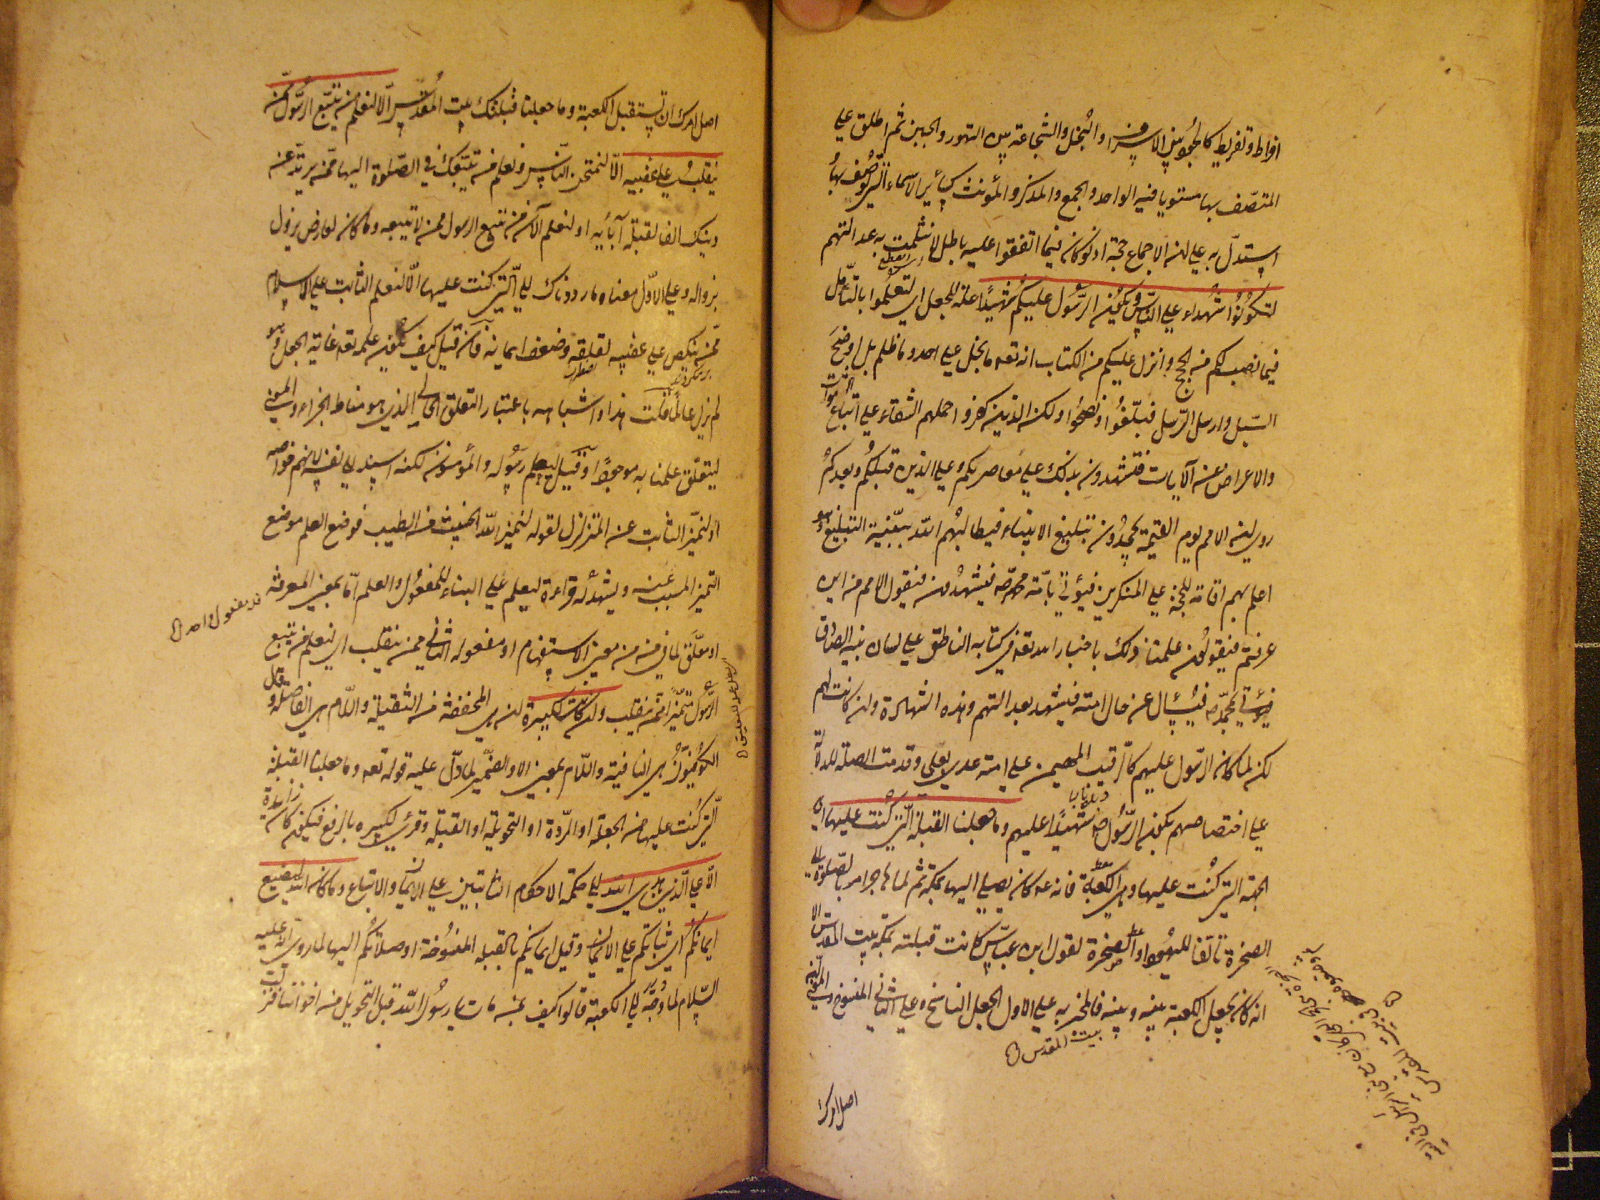 افراط وتفريط كالجود بين الاسراف والبخل والشجاعة بين التهور والجبن ثم اطلق على
المتصف بها مستويا فيه الواحد والجمع والمذكر والمؤنث كسائر الاسماء التي يوصف بها
استدل به على ان الاجماع حجة اذ لو كان فيما اتفقوا عليه باطل لانثلمت به عدالتهم
لتكونوا شهداء على الناس ويكون الرسول عليكم شهيدا علة للجعل اي لتعلموا بالتامل
فيما نصب لكم من الحجج وانزل عليكم من الكتاب انه تعه ما بخل على احد وما ظلم بل اوضح
السبل وارسل الرسل فبلغوا ونصحوا ولكن الذين كفروا حملهم الشقاء على اتباع الشهوات
والاعراض عن الآيات فتشهدون بذلك على معاصريكم وعلى الذين قبلكم وبعدكم
روي ان الامم يوم القيمة يجحدون تبليغ الانبياء فيطالبهم الله ببينة التبليغ وهو
اعلم بهم اقامة للحجة على المنكرين فيؤتى بامة محمد صه فيشهدون فيقول الامم من اين
عرفتم فيقولون علمنا ذلك باخبار الله تعه في كتابه الناطق على لسان نبيه الصادق
فيؤتى بمحمد صه فيسأل عن حال امته فيشهد بعدالتهم وهذه الشهادة وان كانت لهم
لكن لما كان الرسول عليهم كالرقيب المهيمن على امته عدي بعلى وقدمت الصلة للدلالة
على اختصاصهم بكون الرسول صه شهيدا عليهم وما جعلنا القبلة التي كنت عليها اي
الجهة التي كنت عليها وهي الكعبة فانه عه كان يصلي اليها بمكة ثم لما هاجر امر بالصلوة الى
الصخرة تألفا لليهود او الصخرة لقول ابن عباس كانت قبلته بمكة بيت المقدس الا
انه كان يجعل الكعبة بينه وبينه فالمخبر به على الاول الجعل الناسخ وعلى الثاني المنسوخ والمعنى ان
بيت المقدس
اصل امرك
اصل امرك ان تستقبل الكعبة وما جعلنا قبلتك بيت المقدس الا لنعلم من يتبع الرسول ممن
ينقلب على عقبيه الا لنمتحن الناس ونعلم من يتبعك في الصلوة اليها ممن يرتد عن
دينك الفا لقبلة آبائه او لنعلم الآن من يتبع الرسول ممن لا يتبعه وما كان لعارض يزول
بزواله وعلى الاول معناه ما رددناك الى التي كنت عليها الا لنعلم الثابت على الاسلام
ممن ينكص على عقبيه لقلقه وضعف ايمانه فان قيل كيف يكون علمه تعه غاية الجعل وهو
لم يزل عالما قلت هذا واشباهه باعتبار التعلق الحالي الذي هو مناط الجزاء والمعنى
ليتعلق علمنا به موجودا وقيل ليعلم رسوله والمؤمنون لكنه اسند الى نفسه لانهم خواصه
او لنميز الثابت عن المتزلزل لقوله ليميز الله الخبيث من الطيب فوضع العلم موضع
التميز المسبب عنه ويشهد له قراءة ليعلم على البناء للمفعول والعلم اما بمعنى المعرفة
او معلق لما في من من معنى الاستفهام او مفعوله الثاني ممن ينقلب اي لنعلم من يتبع
الرسول متميزا ممن ينقلب وان كانت لكبيرة ان هي المخففة من الثقيلة واللام هي الفاصلة وقال
الكوفيون هي النافية واللام بمعنى الا والضمير لما دل عليه قوله تعه وما جعلنا القبلة
التي كنت عليها من الجعلة او الردة او التحويلة او القبلة وقرئ لكبيرة بالرفع فيكون كان زايدة
الا على الذين هدى الله الى حكمة الاحكام الثابتين على الايمان والاتباع وما كان الله ليضيع
ايمانكم اي ثباتكم على الايمان وقيل ايمانكم بالقبلة المنسوخة او صلاتكم اليها لما روي انه عليه
السلام لما وجه الى الكعبة قالوا كيف بمن مات يا رسول الله قبل التحويل من اخواننا فنزلت